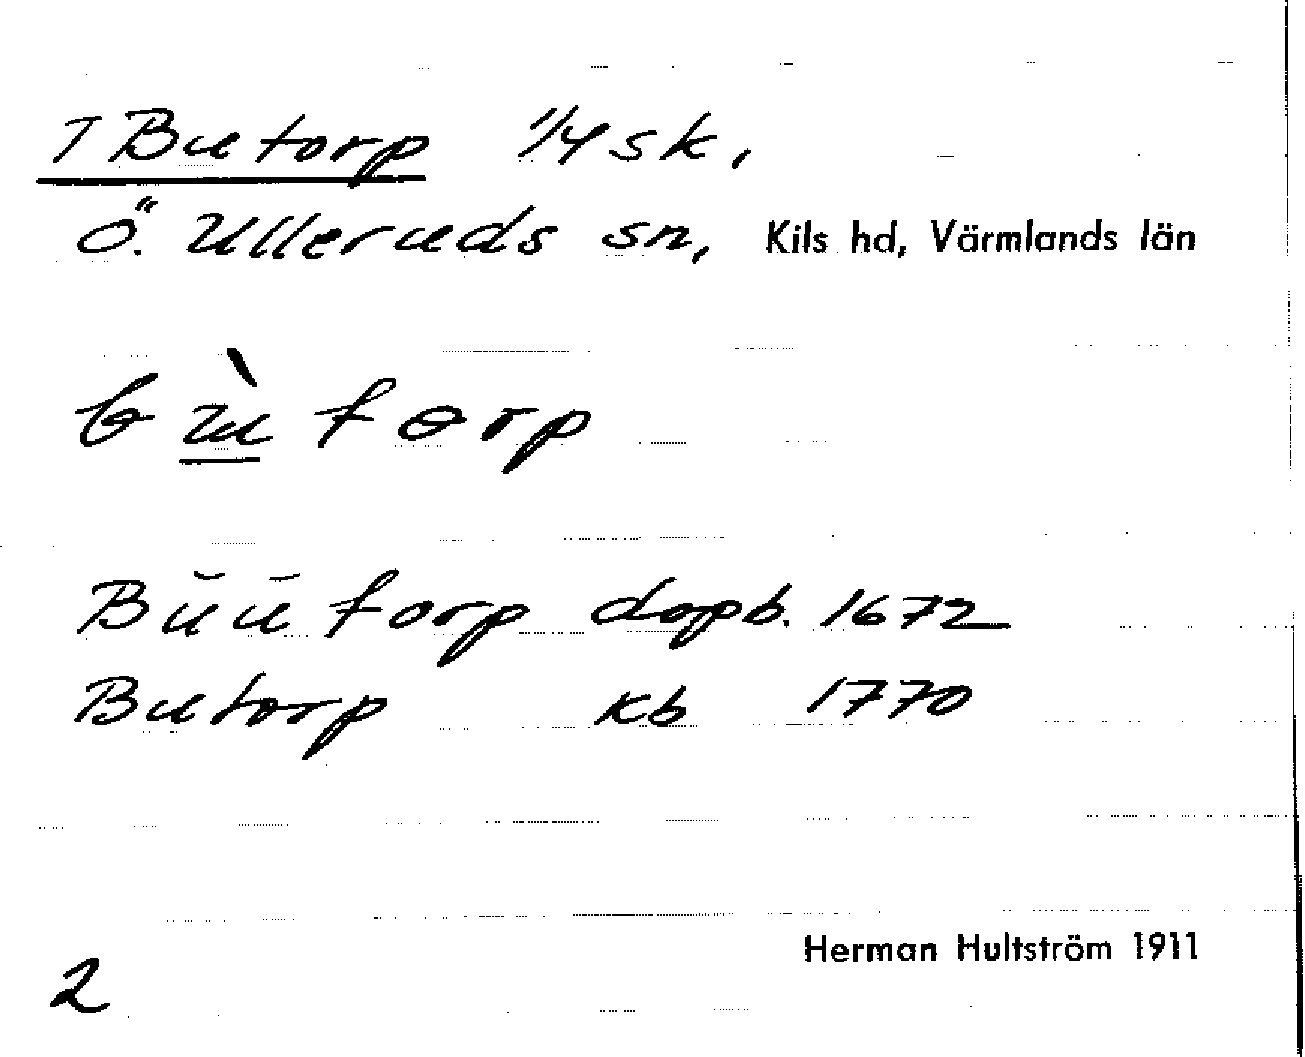 T Butorp 1/4 sk,
Ö. Ulleruds sn, Kils hd, Värmlands län
bù torp
Bŭŭtorp dopb. 1672
Butorp kb 1770
Herman Hultström 1911
2